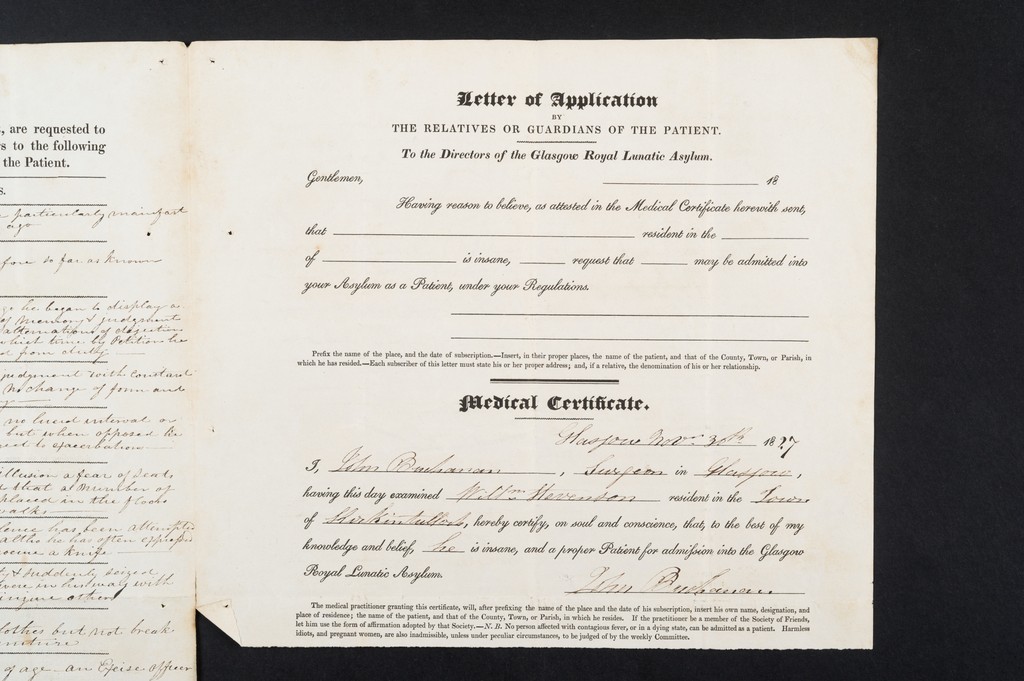 , are requested to
s to the following
the Patient.
s.
particularly
ago
fore so far as known
ge he began to display a
of Memory & judgment
alternations of dejection
first time by Petition he
d from duty
judgment with constant
No change of form and
no lucid interval or
but when opposed he
to exacerbation
illusion a fear of Death
& that a Member of
placed in the flocks
walks
has been attempted
altho he has often expressed
a knife
& suddenly seized
in his way with
injure others
clothes but not break
furniture
of age an Excise officer
Letter of Application
BY
THE RELATIVES OR GUARDIANS OF THE PATIENT.
To the Directors of the Glasgow Royal Lunatic Asylum.
Gentlemen,
18
Having reason to believe, as attested in the Medical Certificate herewith sent,
that resident in the
of is insane, request that may be admitted into
your Asylum as a Patient, under your Regulations.
Prefix the name of the place, and the date of subscription.—Insert, in their proper places, the name of the patient, and that of the County, Town, or Parish, in
which he has resided.—Each subscriber of this letter must state his or her proper address; and, if a relative, the denomination of his or her relationship.
Medical Certificate.
Glasgow Novr 30th 1827
I, John Buchanan, Surgeon in Glasgow,
having this day examined Willm Stevenson resident in the Town
of Kirkintulloch, hereby certify, on soul and conscience, that, to the best of my
knowledge and belief, he is insane, and a proper Patient for admission into the Glasgow
Royal Lunatic Asylum.
John Buchanan
The medical practitioner granting this certificate, will, after prefixing the name of the place and the date of his subscription, insert his own name, designation, and
place of residence; the name of the patient, and that of the County, Town, or Parish, in which he resides. If the practitioner be a member of the Society of Friends,
let him use the form of affirmation adopted by that Society.—N. B. No person affected with contagious fever, or in a dying state, can be admitted as a patient. Harmless
idiots, and pregnant women, are also inadmissible, unless under peculiar circumstances, to be judged of by the weekly Committee.